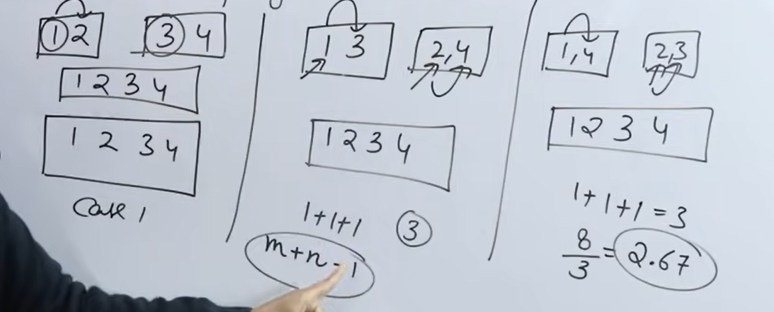 1 2 3 4
1 2 3 4
1 2 3 4
Case 1
1 3 2,4
1 2 3 4
1+1+1 3
m+n-1
1,4 2,3
1 2 3 4
1+1+1=3
8/3=2.67